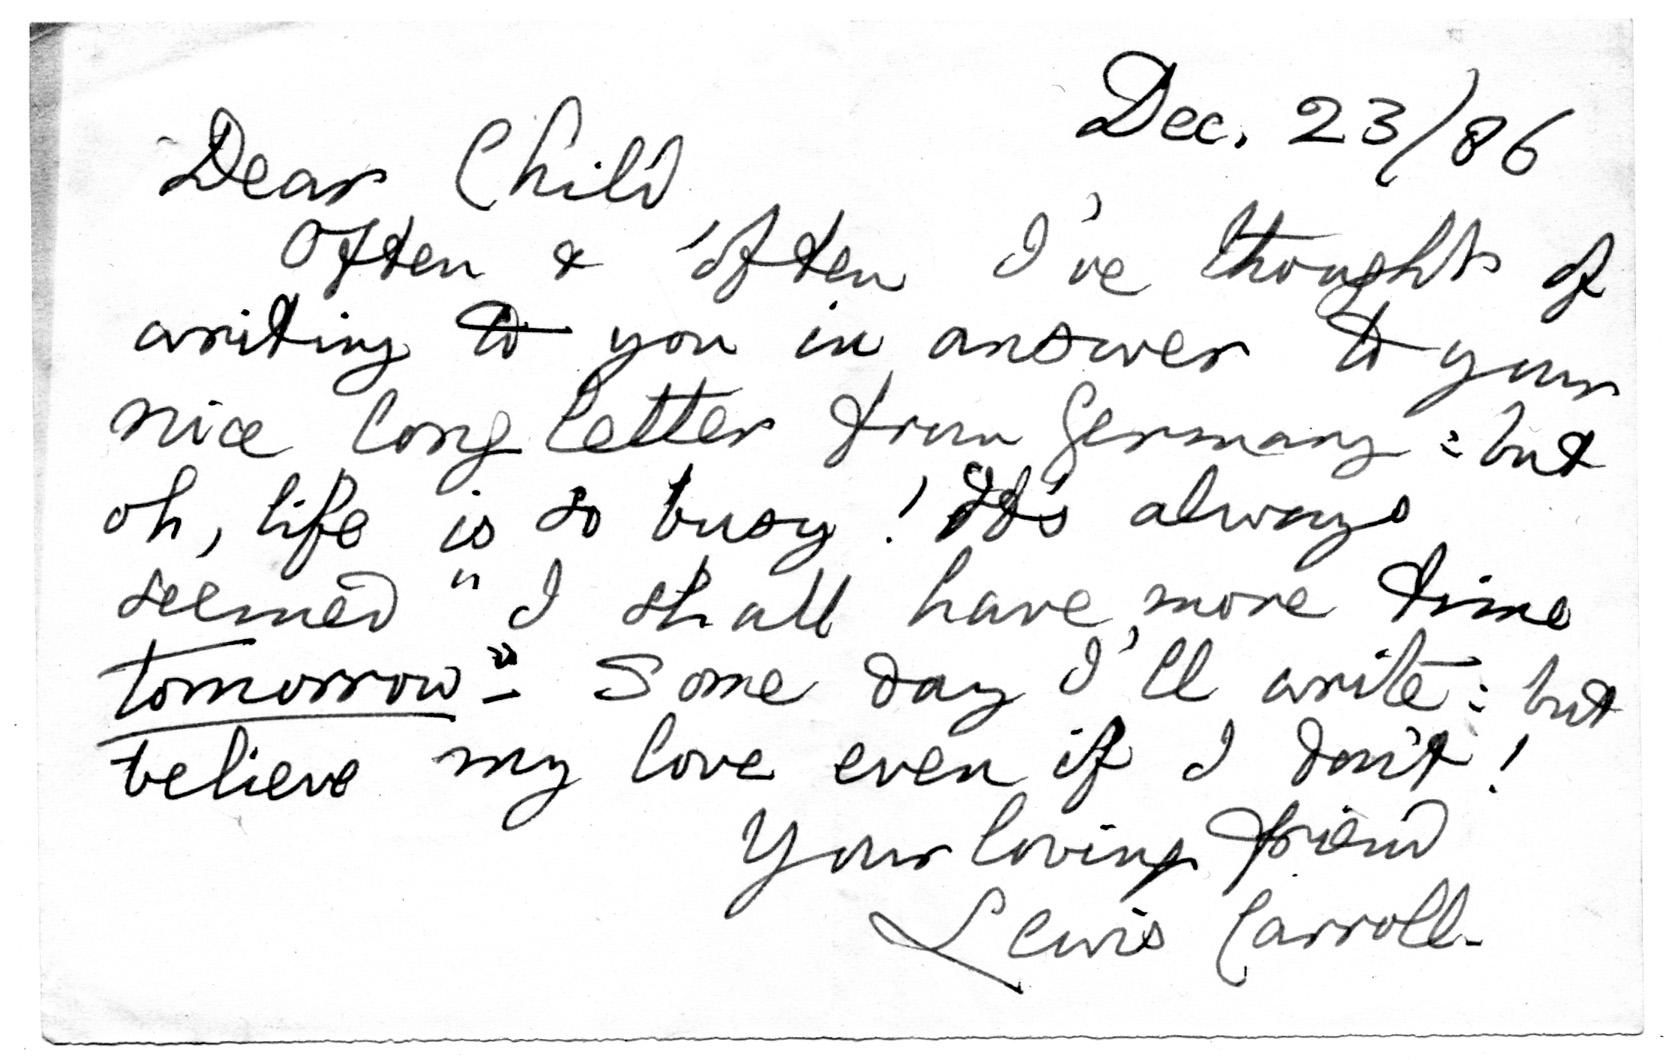 Dec. 23/86
Dear Child
Often & often I've thought of
writing to you in answer to your
nice long letter from Germany : but
oh, life is so busy! It's always
seemed "I shall have more time
tomorrow". Some day I'll write : but
believe my love even if I don't!
Your loving friend
Lewis Carroll.